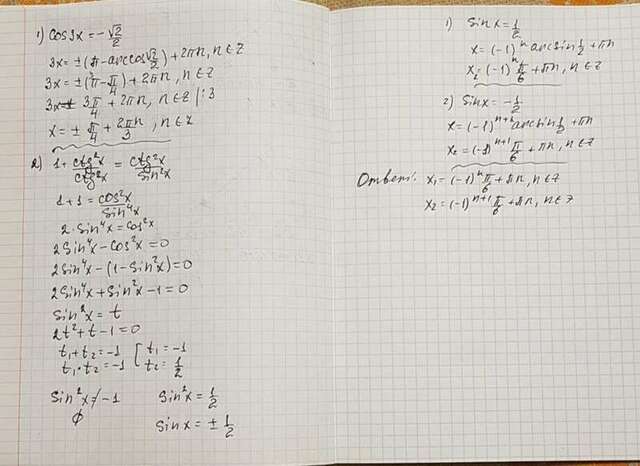 1) cos3x = -√2/2
3x = ±(π - arccos√2/2) + 2πn, n∈Z
3x = ±(π - π/4) + 2πn, n∈Z
3x = ± 3π/4 + 2πn, n∈Z |:3
x = ± π/4 + 2πn/3, n∈Z
2) 1 + ctg²x/ctg²x = ctg²x/sin²x
1 + 1 = cos²x/sin⁴x
2·sin⁴x = cos²x
2sin⁴x - cos²x = 0
2sin⁴x - (1 - sin²x) = 0
2sin⁴x + sin²x - 1 = 0
sin²x = t
2t² + t - 1 = 0
t₁ + t₂ = -1 [ t₁ = -1
t₁·t₂ = -1 t₂ = 1/2
sin²x ≠ -1 sin²x = 1/2
∅ sinx = ± 1/2
1) sinx = 1/2
x = (-1)ⁿ arcsin 1/2 + πn
x₂ = (-1)ⁿ π/6 + πn, n∈Z
2) sinx = -1/2
x = (-1)ⁿ⁺¹ arcsin 1/2 + πn
x₂ = (-1)ⁿ⁺¹ π/6 + πn, n∈Z
Ответ: x₁ = (-1)ⁿ π/6 + πn, n∈Z
x₂ = (-1)ⁿ⁺¹ π/6 + πn, n∈Z